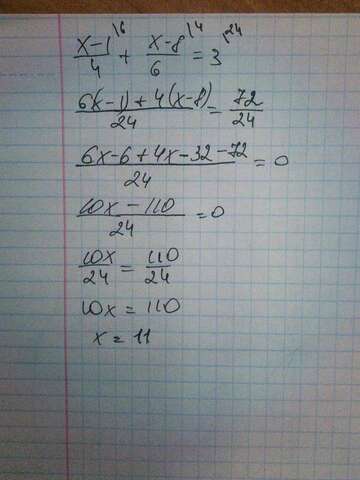 (x-1)/4 \6 + (x-8)/6 \4 = 3 \24
(6(x-1)+4(x-8))/24 = 72/24
(6x-6+4x-32-72)/24 = 0
(10x-110)/24 = 0
10x/24 = 110/24
10x = 110
x = 11